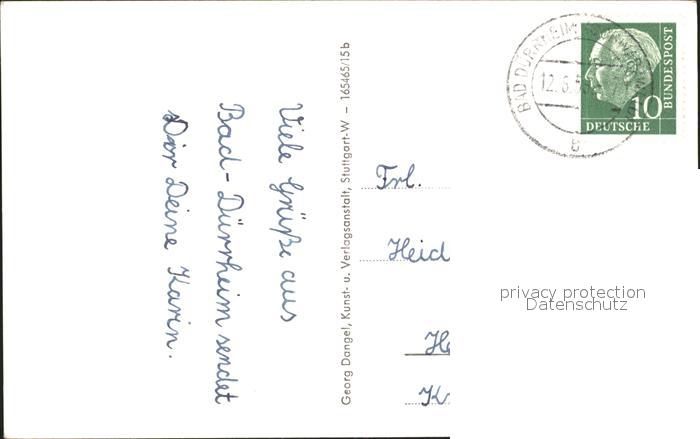 Viele Grüße aus
Bad-Dürrheim sendet
Dir Deine Karin.
Georg Dangel, Kunst- u. Verlagsanstalt, Stuttgart-W – 165465/15b
Frl.
Heid
He
Kr
BAD DÜRRHEIM
12.6.5
a
10
DEUTSCHE
BUNDESPOST
privacy protection
Datenschutz